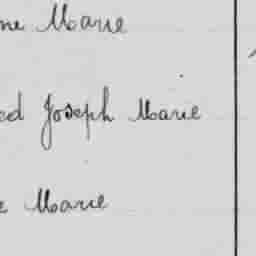 ne Marie
ed Joseph Marie
e Marie